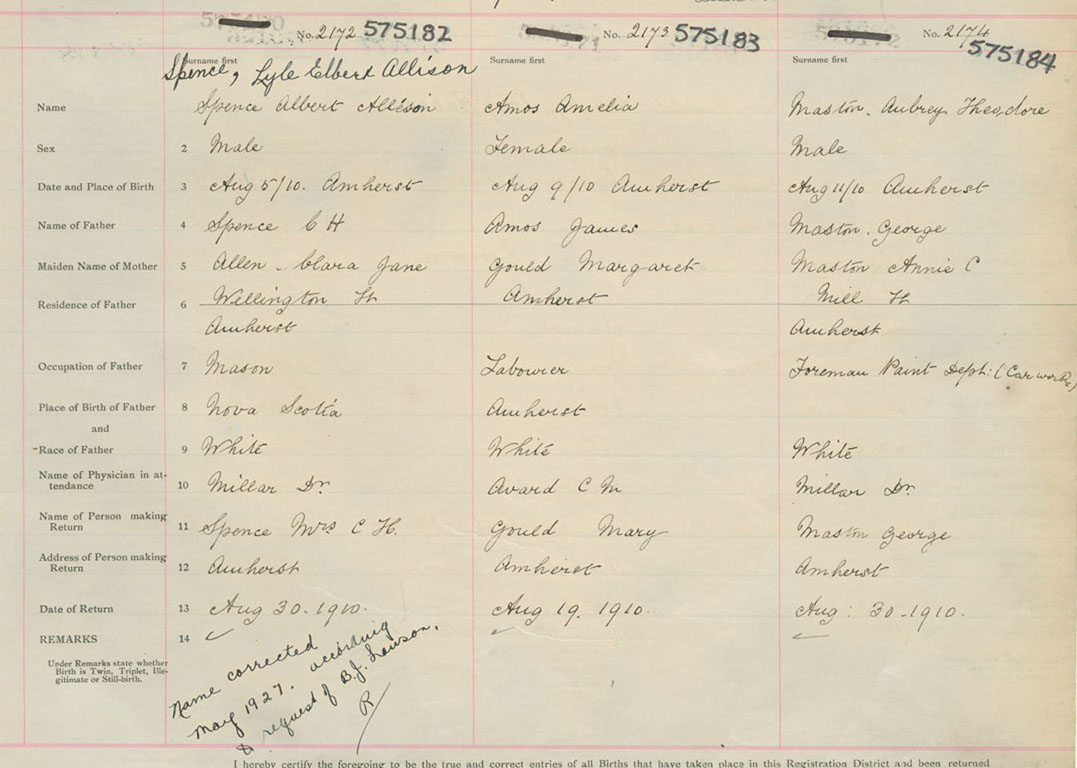 No. 2172 575182
No. 2173 575183
No. 2174 575184
Surname first
Surname first
Surname first
Spence, Lyle Elbert Allison
Name Spence Albert Allison Amos Amelia Maston. Aubrey Theodore
Sex 2 Male Female Male
Date and Place of Birth 3 Aug 5/10. Amherst Aug 9/10 Amherst Aug 11/10 Amherst
Name of Father 4 Spence C H Amos James Maston. George
Maiden Name of Mother 5 Allen Clara Jane Gould Margaret Maston Annie C
Residence of Father 6 Wellington St Amherst Mill St
Amherst Amherst
Occupation of Father 7 Mason Labourer Foreman Paint Dept: (Car works)
Place of Birth of Father 8 Nova Scotia Amherst
and
Race of Father 9 White White White
Name of Physician in at-
tendance 10 Millar Dr. Avard C M Millar Dr.
Name of Person making
Return 11 Spence Mrs C H. Gould Mary Maston George
Address of Person making
Return 12 Amherst Amherst Amherst
Date of Return 13 Aug 30-1910. Aug 19. 1910. Aug: 30-1910.
REMARKS 14
Under Remarks state whether
Birth is Twin, Triplet, Ille-
gitimate or Still-birth.
Name corrected
May 1927. according
to request of B.J. Lawson.
R
I hereby certify the foregoing to be the true and correct entries of all Births that have taken place in this Registration District and been returned